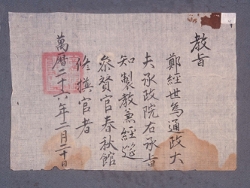 教旨
鄭經世爲通政大
夫承政院右承旨
知製教兼經筵
參贊官春秋館
修撰官者
萬曆二十六年二月二十日